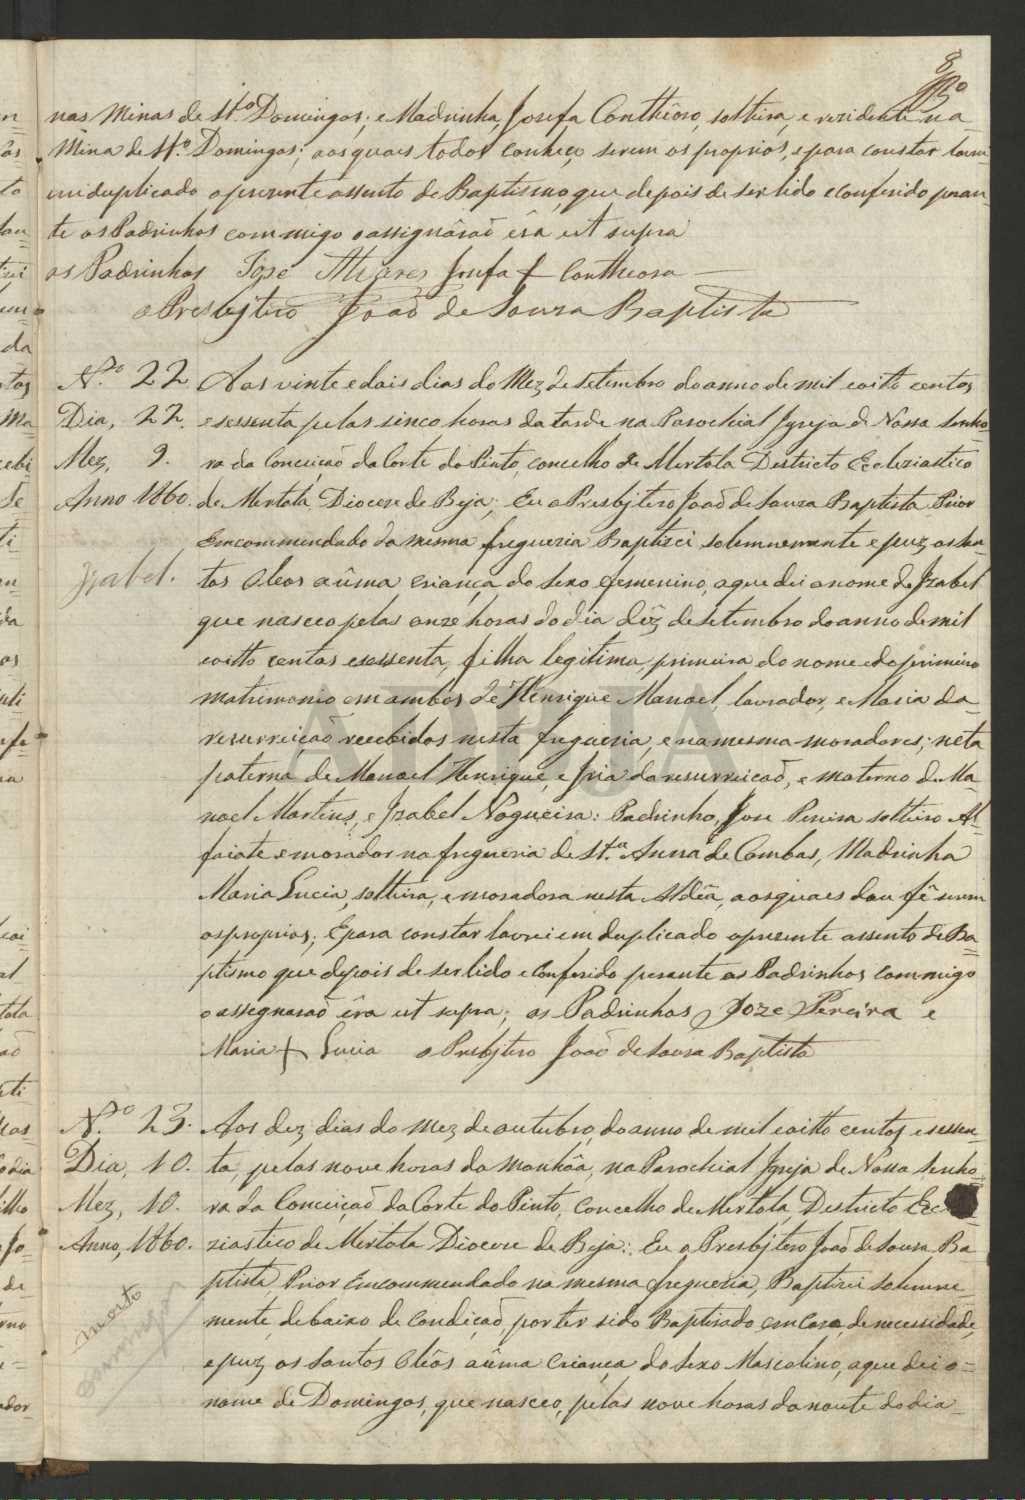 8
nas Minas de Stº Domingos; e Madrinha, Josefa Conthêoro, solteira, e rezidente na
Mina de Stº Domingos; aos quaes todos conheço serem os proprios, e para constar lavrei
em duplicado o prezente assento de Baptismo, que depois de ser lido e conferido peran-
te os Padrinhos commigo o assignárão êra ut supra
os Padrinhos Joze Alvares Josefa + Contheora
o Presbjtero João de Souza Baptista
N.º 22 Aos vinte e dois dias do Mez de Setembro do anno de mil e oitto centos
Dia, 22. e sessenta pelas sinco horas da tarde na Parochial Igreja de Nossa Senho-
Mez, 9. ra da Conceição da Corte do Pinto, concelho de Mertola Destricto Ecleziastico
Anno 1860. de Mertola, Diocese de Beja; Eu o Presbjtero João de Souza Baptista Prior
Emcommendado da mesma freguezia Baptizei solemnemente e puz os San-
Izabel. tos Oleos a ûma criança do sexo femenino, a que dei o nome de Izabel
que nasceo pelas onze horas do dia déz de Setembro do anno de mil
e oitto centos e sessenta, filha legitima, primeira do nome e do primeiro
matrimonio em ambos de Henrique Manoel, lavrador, e Maria da
resurreição recebidos nesta freguezia, e na mesma moradores; neta
paterna de Manoel Henrique, e Iria da resurreição, e materna de Ma-
noel Martins, e Izabel Nogueira: Padrinho, Joze Pereira solteiro Al-
faiate e morador na freguezia de Stª Anna de Cambas, Madrinha
Maria Lucia, solteira, e moradora nesta Aldêa, aos quaes dou fê serem
os proprios; E para constar lavrei em duplicado o prezente assento de Ba-
ptismo que depois de ser lido e conferido perante os Padrinhos commigo
o assegnarão êra ut supra; os Padrinhos Joze Pereira e
Maria + Lucia o Presbjtero João de Souza Baptista
N.º 23. Aos dez dias do mez de outubro, do anno de mil e oitto centos e sessen-
Dia, 10. ta, pelas nove horas da manhâa, na Parochial Igreja de Nossa Senho-
Mez, 10. ra da Conceição da Corte do Pinto, concelho de Mertola, Destricto Ec
Anno, 1860. ziastico de Mertola Diocese de Beja; Eu o Presbjtero João de Souza Ba
ptista, Prior Emcommendado na mesma freguezia, Baptizei solemne-
morto mente, debaixo de condição, por ter sido Baptizado em caza, de necessidade,
Domingos e puz os Santos Oléos a ûma criança do sexo Mascolino, a que dei o
nome de Domingos, que nasceo, pelas nove horas da noute do dia